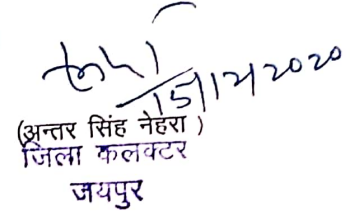 15/12/2020
(अन्तर सिंह नेहरा )
जिला कलक्टर
जयपुर